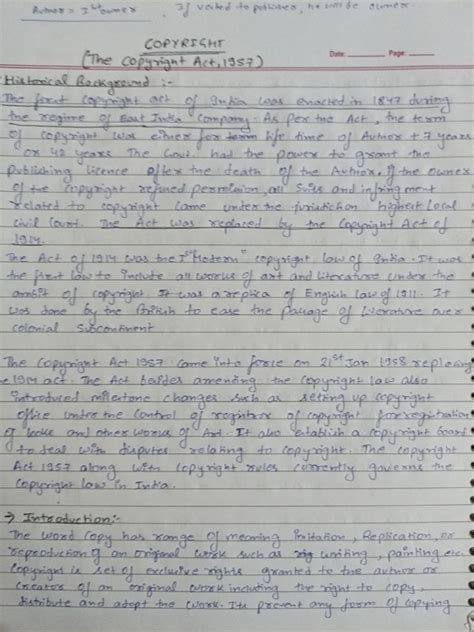 Author = Ist owner, If vested to publisher, he will be owner.
COPYRIGHT
Date: Page:
(The Copyright Act, 1957)
Historical Background :-
The first copyright act of India was enacted in 1847 during
the regime of East India Company. As per the Act, the term
of copyright was either for term life time of Author + 7 years
or 42 years The Govt. had the power to grant the
publishing licence after the death of the Author. If the owner
of the copyright refused permission, all suits and infringment
related to copyright came under the juristiction highest local
civil court. The Act was replaced by the Copyright Act of
1914.
The Act of 1914 was the Ist "Modern" copyright law of India. It was
the first law to include all works of art and literature under the
ambit of copyright. It was a replica of English law of 1911. It
was done by the British to ease the passage of literature over
colonial subcontinent
The Copyright Act 1957 came into force on 21st Jan 1958 replacing
the 1914 act. The Act besides amending the copyright law also
introduced milestone changes such as setting up copyright
office under the control of registrar of copyright for registration
of books and other works of Art. It also establish a copyright board
to deal with disputes relating to copyright. The copyright
Act 1957 along with copyright rules currently governs the
copyright law in India.
→ Introduction:-
The word copy has range of meaning imitation, Replication, or
reproduction of an original work such as writing, painting etc.
Copyright is set of exclusive rights granted to the author or
creator of an original work including the right to copy,
distribute and adopt the work. Its prevent any form of copying